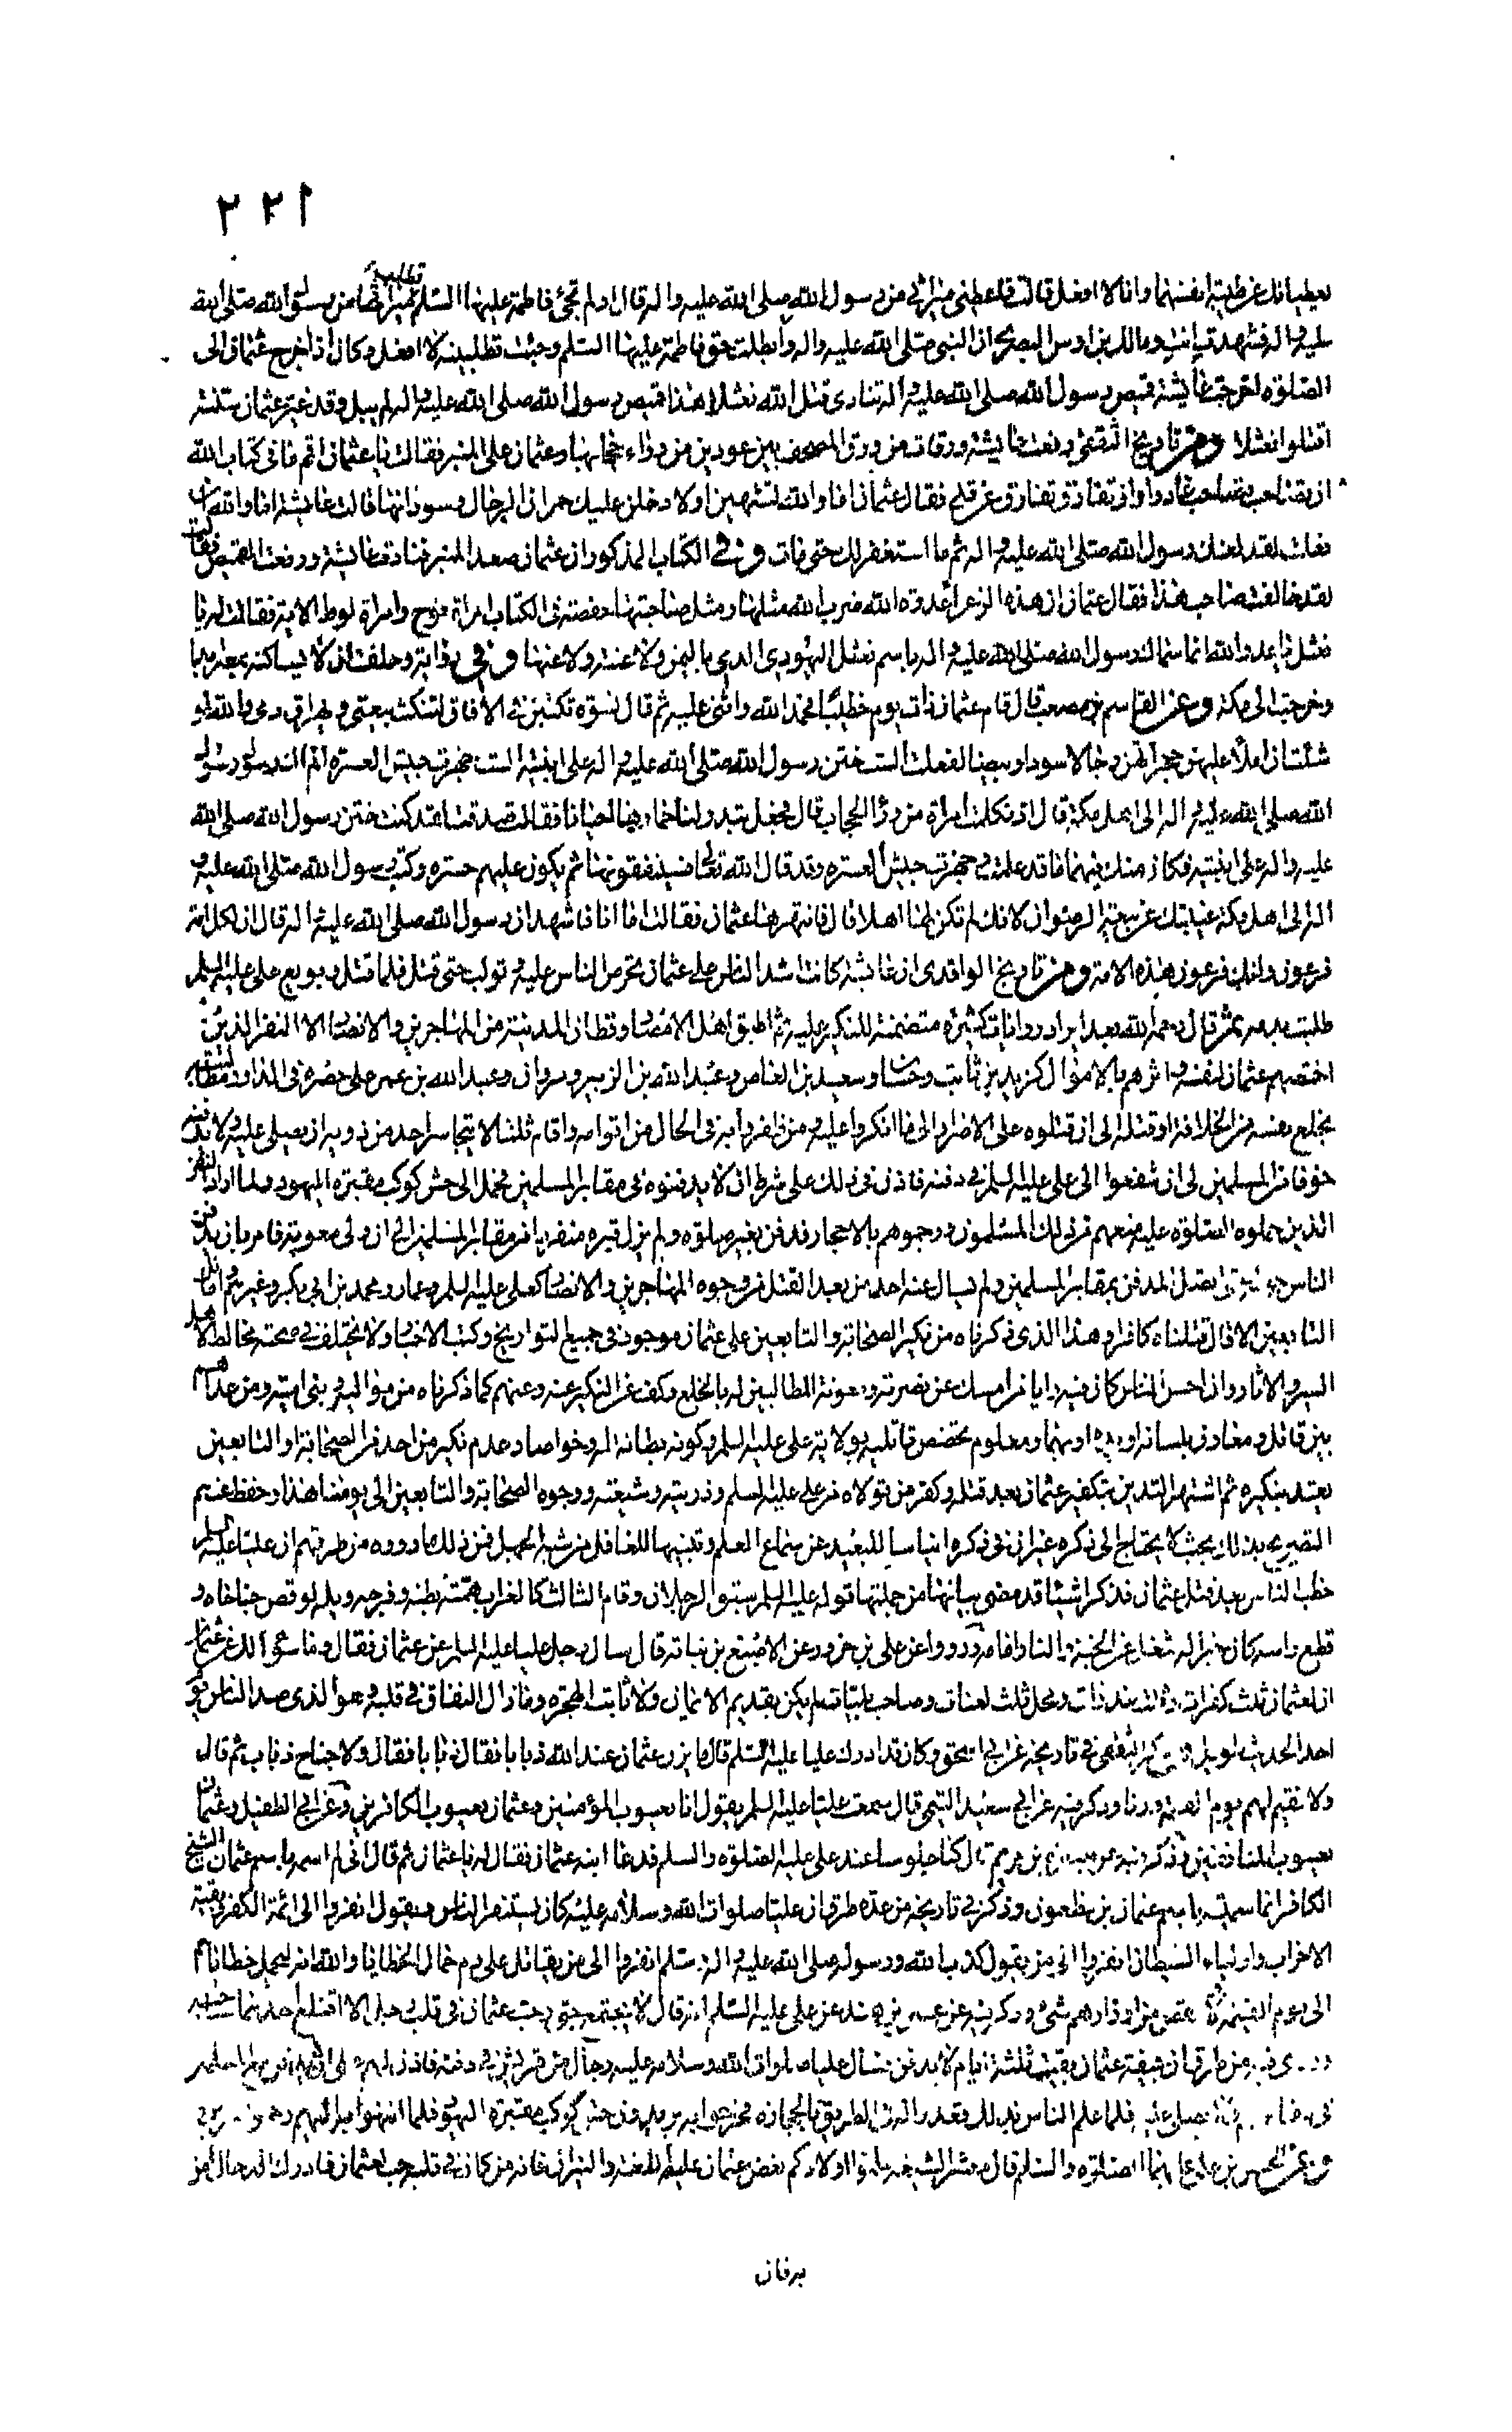 ٢٢١
يعطيانك عن طيبة انفسهما وانا لا افعل قالت فاعطني ميراثي من رسول الله صلى الله عليه واله قال اولم تجئ فاطمة عليها السلم تطلب ميراثها من رسول الله صلى الله
عليه واله فشهدت انت ومالك بن اوس البصرى ان النبي صلى الله عليه واله وابطلت حق فاطمة عليها السلم وجئت تطلبينه لا افعل وكان اذا خرج عثمان الى
الصلوة اخرجت عايشة قميص رسول الله صلى الله عليه واله تنادى قتل الله نعثلا هذا قميص رسول الله صلى الله عليه واله لم يبل وقد غير عثمان سنته
اقتلوا نعثلا ومن تاريخ الثقفى رفعت عايشة ورقات من ورق المصحف بين عودين من وراء حجابها وعثمان على المنبر فقالت يا عثمان اقم ما فى كتاب الله
ان تصاحب تصاحب غادرا وان تفارق تفارق عن قلى فقال عثمان اما والله لتنتهين او لادخلن عليك حمران الرجال وسودانها قالت عايشة اما والله ان
فعلت لقد لعنك رسول الله صلى الله عليه واله ثم ما استغفر لك حتى مات ومن فى الكتاب المذكور ان عثمان صعد المنبر فنادت عايشة ورفعت القميص فقالت
لقد خالفت صاحب هذا فقال عثمان ان هذه الزعراء عدوة الله ضرب الله مثلها ومثل صاحبتها حفصة فى الكتاب امراة نوح وامراة لوط الاية فقالت له يا
نعثل يا عدو الله انما سماك رسول الله صلى الله عليه واله باسم نعثل اليهودى الذى باليمن ولاعنته ولاعنها وفي رواية وحلفت ان لا تساكنه بمصر ابدا
وخرجت الى مكة وعن القاسم بن مصعب قال قام عثمان ذات يوم خطيبا فحمد الله واثنى عليه ثم قال نسوة تكتبن فى الافاق لتنكث بيعتى ويهراق دمى والله لو
شئت ان املأ عليهن حجراتهن رجالا سودا وبيضا لفعلت الست ختن رسول الله صلى الله عليه واله على ابنتيه الست جهزت جيش العسرة الم اك رسول رسول
الله صلى الله عليه واله الى اهل مكة قال اذ تكلمت امراة من وراء الحجاب قال فجعل تبدو لنا خمارها احيانا فقالت صدقت لقد كنت ختن رسول الله صلى الله
عليه واله على ابنتيه فكان منك فيهما ما قد علمت وجهزت جيش العسرة وقد قال الله تعالى فسينفقونها ثم يكون عليهم حسرة وكنت رسول رسول الله صلى الله عليه و
اله الى اهل مكة غيبتك عن بيعة الرضوان لانك لم تكن لها اهلا قال فانتهرها عثمان فقالت اما انا فاشهد ان رسول الله صلى الله عليه واله قال ان لكل امة
فرعون وانك فرعون هذه الامة ومن تاريخ الواقدى ان عايشة كانت اشد الناس على عثمان تحرص الناس عليه وتولب حتى قتل فلما قتل وبويع على عليه السلم
طلبت بدمه ثم قال رحمه الله بعد ايراد روايات كثيرة متضمنة للنكير عليه ثم اطبق اهل الامصار وقطان المدينة من المهاجرين والانصار الا النفر الذين
اختصهم عثمان لنفسه واثرهم بالاموال كزيد بن ثابت وحسان وسعيد بن العاص وعبد الله بن الزبير ومروان وعبد الله بن عمر على حصره فى الدار ومطالبته
بخلع نفسه من الخلافة او قتله الى ان قتلوه على الاصرار الى ما انكروا عليه ومن ظفر وابه فى الحال من اعوانه واقام ثلثا لا يتجاسر احد من ذويه ان يصلى عليه ولا يدفنه
خوفا من المسلمين الى ان شفعوا الى على عليه السلم فى دفنه فاذن فى ذلك على شرط ان لا يدفنوه فى مقابر المسلمين فحمل الى حش كوكب مقبرة اليهود ولما اراد النفر
الذين حملوه الصلوة عليه منعهم من ذلك المسلمون ورجموهم بالاحجار فدفن بغير صلوة ولم يزل قبره منفردا من مقابر المسلمين الى ان ولى معوية فامر بان يدفن
الناس حوله حتى اتصل المدفن بمقابر المسلمين ولم يسال عنه احد من بعد القتل من وجوه المهاجرين والانصار كعلى عليه السلم وعمار ومحمد بن ابى بكر وغيرهم واماثل
التابعين الا قال قتلناه كافرا وهذا الذى ذكرناه من نكير الصحابة والتابعين على عثمان موجود فى جميع التواريخ وكتب الاخبار ولا يختلف فى صحته مخالط لاهل
السير والاثار وان احسن الناس كان فيه رايا من امسك عن نصرته ومعونة المطالبين له بالخلع وكف عن النكير عنه وعنهم كما ذكرناه من مواليه وبنى امية ومن عداهم
بين قاتل ومعاون بلسانه او بيده او بهما ومعلوم تخصص قاتليه بولاية على عليه السلم وكونه بطانة له وخواصا وعدم نكير من احد من الصحابة او التابعين
يعتد بنكيره ثم اشتهر التدين بتكفير عثمان بعد قتله وكفر من تولاه من على عليه السلم وذريته وشيعته ووجوه الصحابة والتابعين الى يومنا هذا وحفظ عنهم
التصريح بذلك بحيث لا يحتاج الى ذكره غير ان فى ذكره ايناسا للبعيد عن سماع العلم وتنبيها للغافل من سنة الجهل فمن ذلك ما رووه من طرقهم ان عليا عليه السلم
خطب الناس بعد قتل عثمان فذكر اشياء قد مضى بيانها من جملتها قوله عليه السلم سبق الرجلان وقام الثالث كالغراب همته بطنه وفرجه ويله لو قص جناحاه و
قطع راسه كان خيرا له شغل عن الجنة والنار امامه ورووا عن على بن حزور عن الاصبغ بن نباتة قال سال رجل عليا عليه السلم عن عثمان فقال وما سؤالك عن عثمان
ان لعثمان ثلث كفرات وثلث غدرات ومحل ثلث لعنات وصاحب بليات لم يكن بقديم الايمان ولا ثابت الهجرة وما زال النفاق فى قلبه وهو الذى صد الناس يوم
احد الحديث طويل الثقفى فى تاريخه عن وكان قد ادرك عليا عليه السلم قال ما يزن عثمان عند الله ذبابا فقال ذبابا فقال ولا جناح ذباب ثم قال
ولا نقيم لهم يوم القيمة وزنا وذكر فيه عن ابى سعيد التيمى قال سمعت عليا عليه السلم يقول انا يعسوب المؤمنين وعثمان يعسوب الكافرين وعن ابى الطفيل وعثمان
يعسوب المنافقين وذكر فيه عن بن مريم قال كنا جلوسا عند على عليه الصلوة والسلم فدعا ابنه عثمان فقال له يا عثمان ثم قال انى لم اسمه باسم عثمان الشيخ
الكافر انما سميته باسم عثمان بن مظعون وذكر فى تاريخه من عدة طرق ان عليا صلوات الله وسلامه عليه كان يستنفر الناس ويقول انفروا الى ائمة الكفر وبقية
الاحزاب واولياء الشيطان انفروا الى من يقول كذب الله ورسوله صلى الله عليه واله وسلم انفروا الى من يقاتل على دم حمال الخطايا والله انه ليحمل خطاياهم
الى يوم القيمة لا ينقص من اوزارهم شىء وذكر فيه عن بن هند عن على عليه السلم انه قال لا يجتمع حبى وحب عثمان فى قلب رجل الا اقتلع احدهما صاحبه
من طرق ان جيفة عثمان بقيت ثلثة ايام لا يدفن فسال عليا صلوات الله وسلامه عليه رجال من قريش فى دفنه فاذن لهم
فلما علم الناس بذلك قعدوا له فى الطريق بالحجارة فخرجوا به يريدون حش كوكب مقبرة اليهود فلما انتهوا به اليهم
بن على عليهما الصلوة والسلم قال معشر الشيعة علموا اولادكم بغض عثمان عليه اللعنة والنيران فانه من كان فى قلبه حب لعثمان فادرك الدجال امن
به فان